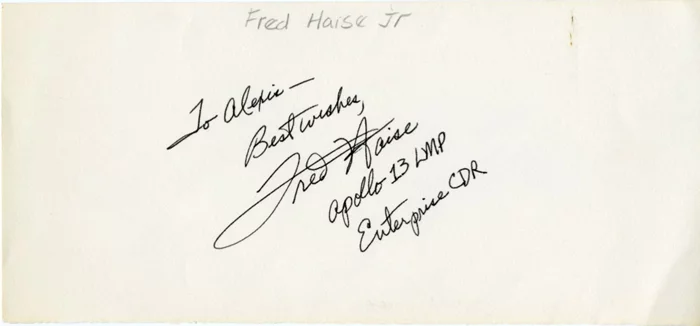 Fred Haise Jr
To Alexis —
Best wishes,
Fred Haise
Apollo 13 LMP
Enterprise CDR